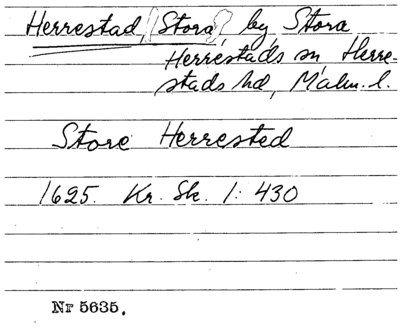 Herrestad, [Stora], by, Stora
Herrestads sn, Herre-
stads hd, Malm. l.
Store Herrested
1625. Kr. Sk. 1: 430
Nr 5635.